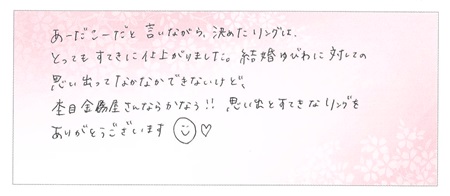 あーだこーだと言いながら、決めたリングは、
とってもすてきに仕上がりました。結婚ゆびわに対しての
思い出ってなかなかできないけど、
杢目金屋さんならかなう!! 思い出とすてきなリングを
ありがとうございます ☺ ♡